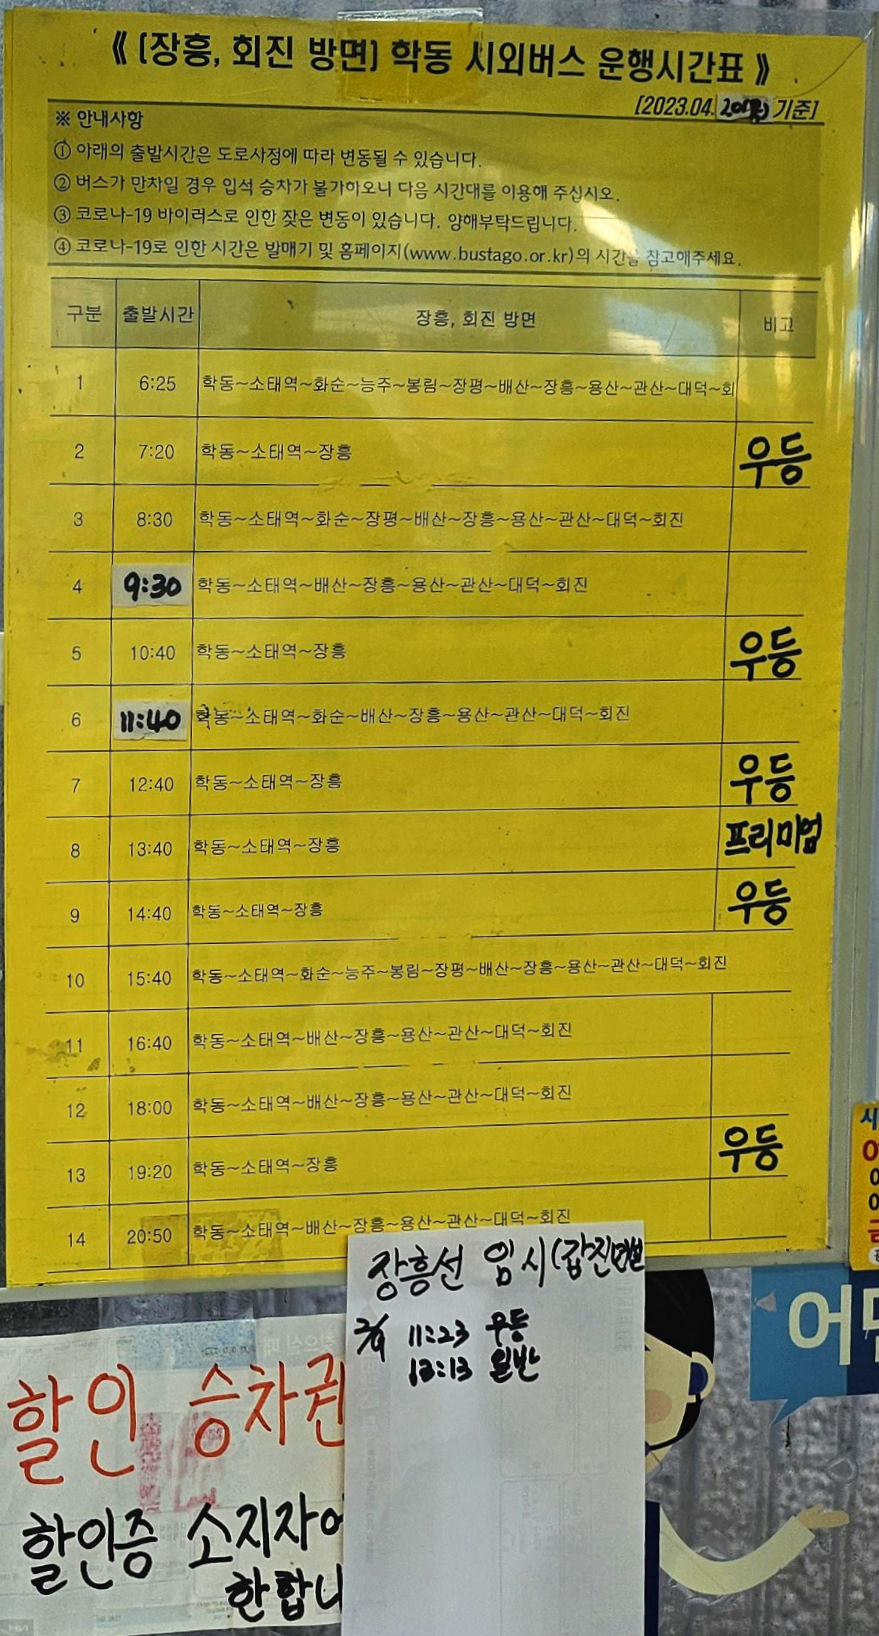 《 [장흥, 회진 방면] 학동 시외버스 운행시간표 》
[2023.04.20(목) 기준]
※ 안내사항
① 아래의 출발시간은 도로사정에 따라 변동될 수 있습니다.
② 버스가 만차일 경우 입석 승차가 불가하오니 다음 시간대를 이용해 주십시오.
③ 코로나-19 바이러스로 인한 잦은 변동이 있습니다. 양해부탁드립니다.
④ 코로나-19로 인한 시간은 발매기 및 홈페이지(www.bustago.or.kr)의 시간을 참고해주세요.
구분 출발시간 장흥, 회진 방면 비고
1 6:25 학동~소태역~화순~능주~봉림~장평~배산~장흥~용산~관산~대덕~회
2 7:20 학동~소태역~장흥 우등
3 8:30 학동~소태역~화순~장평~배산~장흥~용산~관산~대덕~회진
4 9:30 학동~소태역~배산~장흥~용산~관산~대덕~회진
5 10:40 학동~소태역~장흥 우등
6 11:40 학동~소태역~화순~배산~장흥~용산~관산~대덕~회진
7 12:40 학동~소태역~장흥 우등
8 13:40 학동~소태역~장흥 프리미엄
9 14:40 학동~소태역~장흥 우등
10 15:40 학동~소태역~화순~능주~봉림~장평~배산~장흥~용산~관산~대덕~회진
11 16:40 학동~소태역~배산~장흥~용산~관산~대덕~회진
12 18:00 학동~소태역~배산~장흥~용산~관산~대덕~회진
13 19:20 학동~소태역~장흥 우등
14 20:50 학동~소태역~배산~장흥~용산~관산~대덕~회진
장흥선 임시
11:23 우등
13:13 일반
할인 승차권
할인증 소지자에
한합니